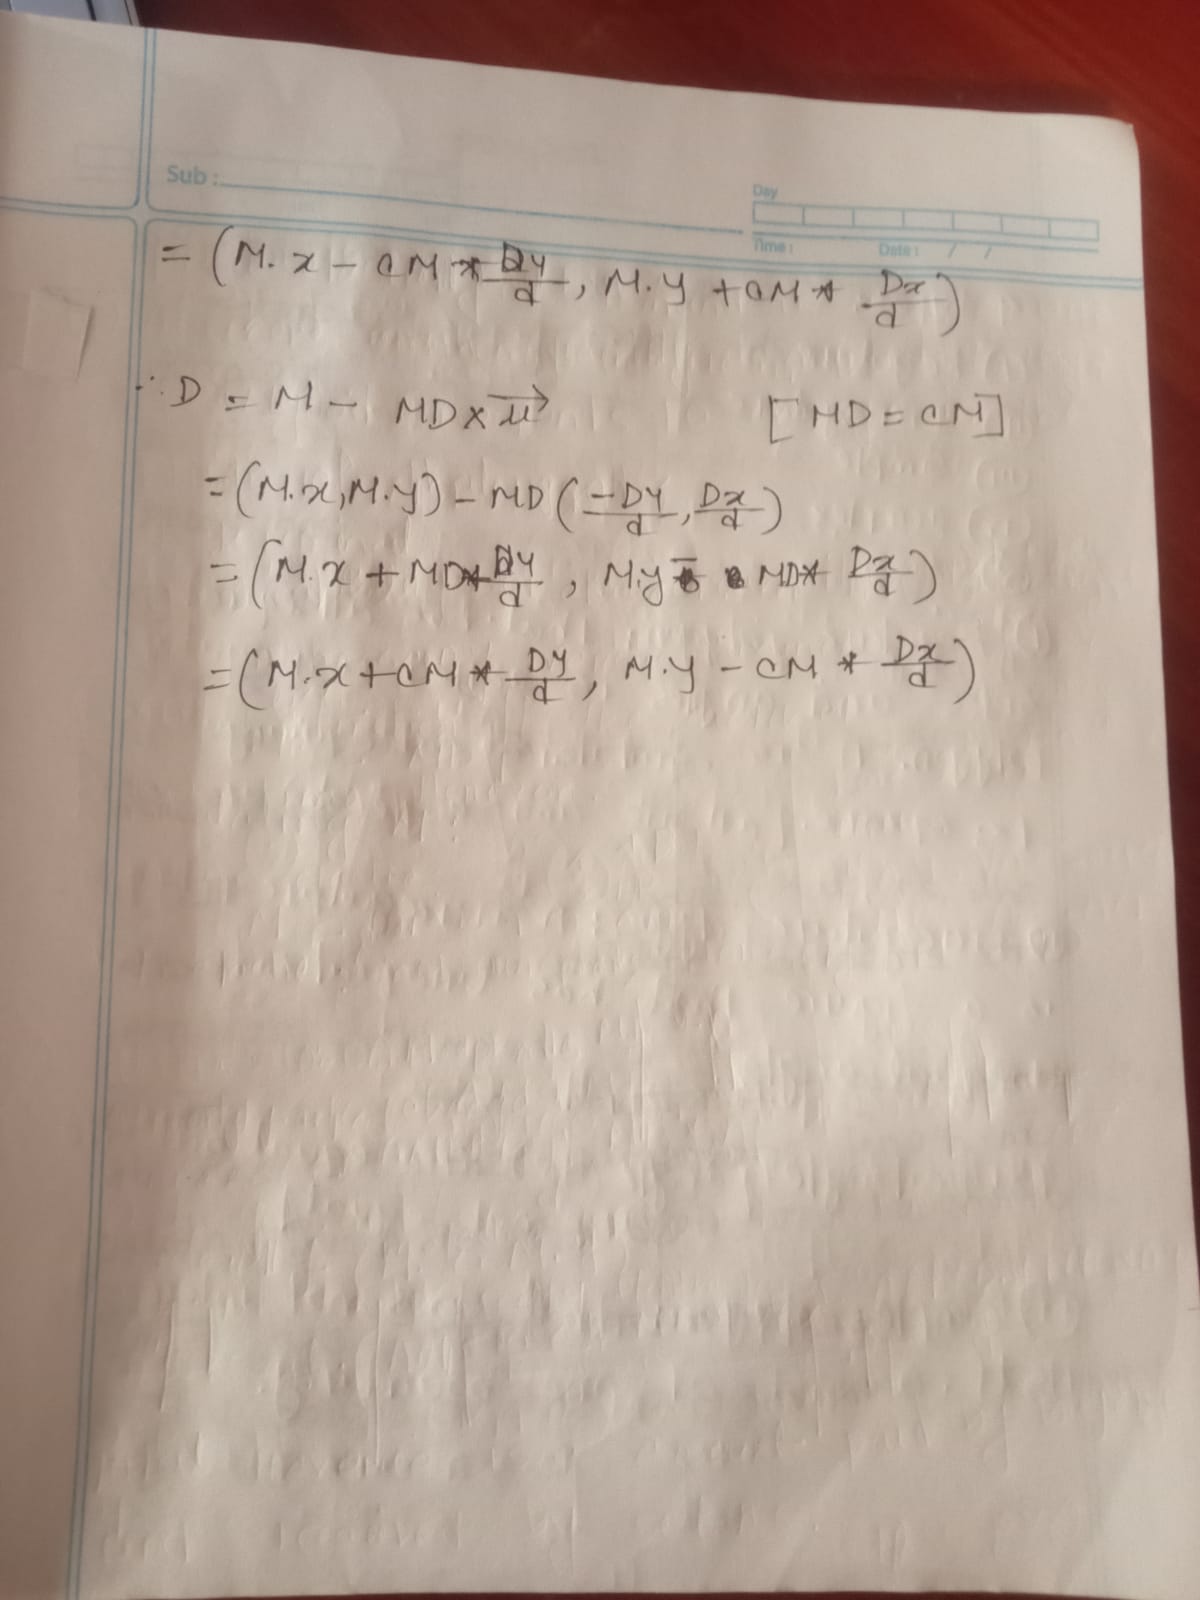 Sub :
Day
Time :
Date : / /
= (M.x - CM * Dy/d, M.y + CM * Dx/d)
∴ D = M - MD x u⃗ [MD = CM]
= (M.x, M.y) - MD (-Dy/d, Dx/d)
= (M.x + MD * Dy/d, M.y - MD * Dx/d)
= (M.x + CM * Dy/d, M.y - CM * Dx/d)